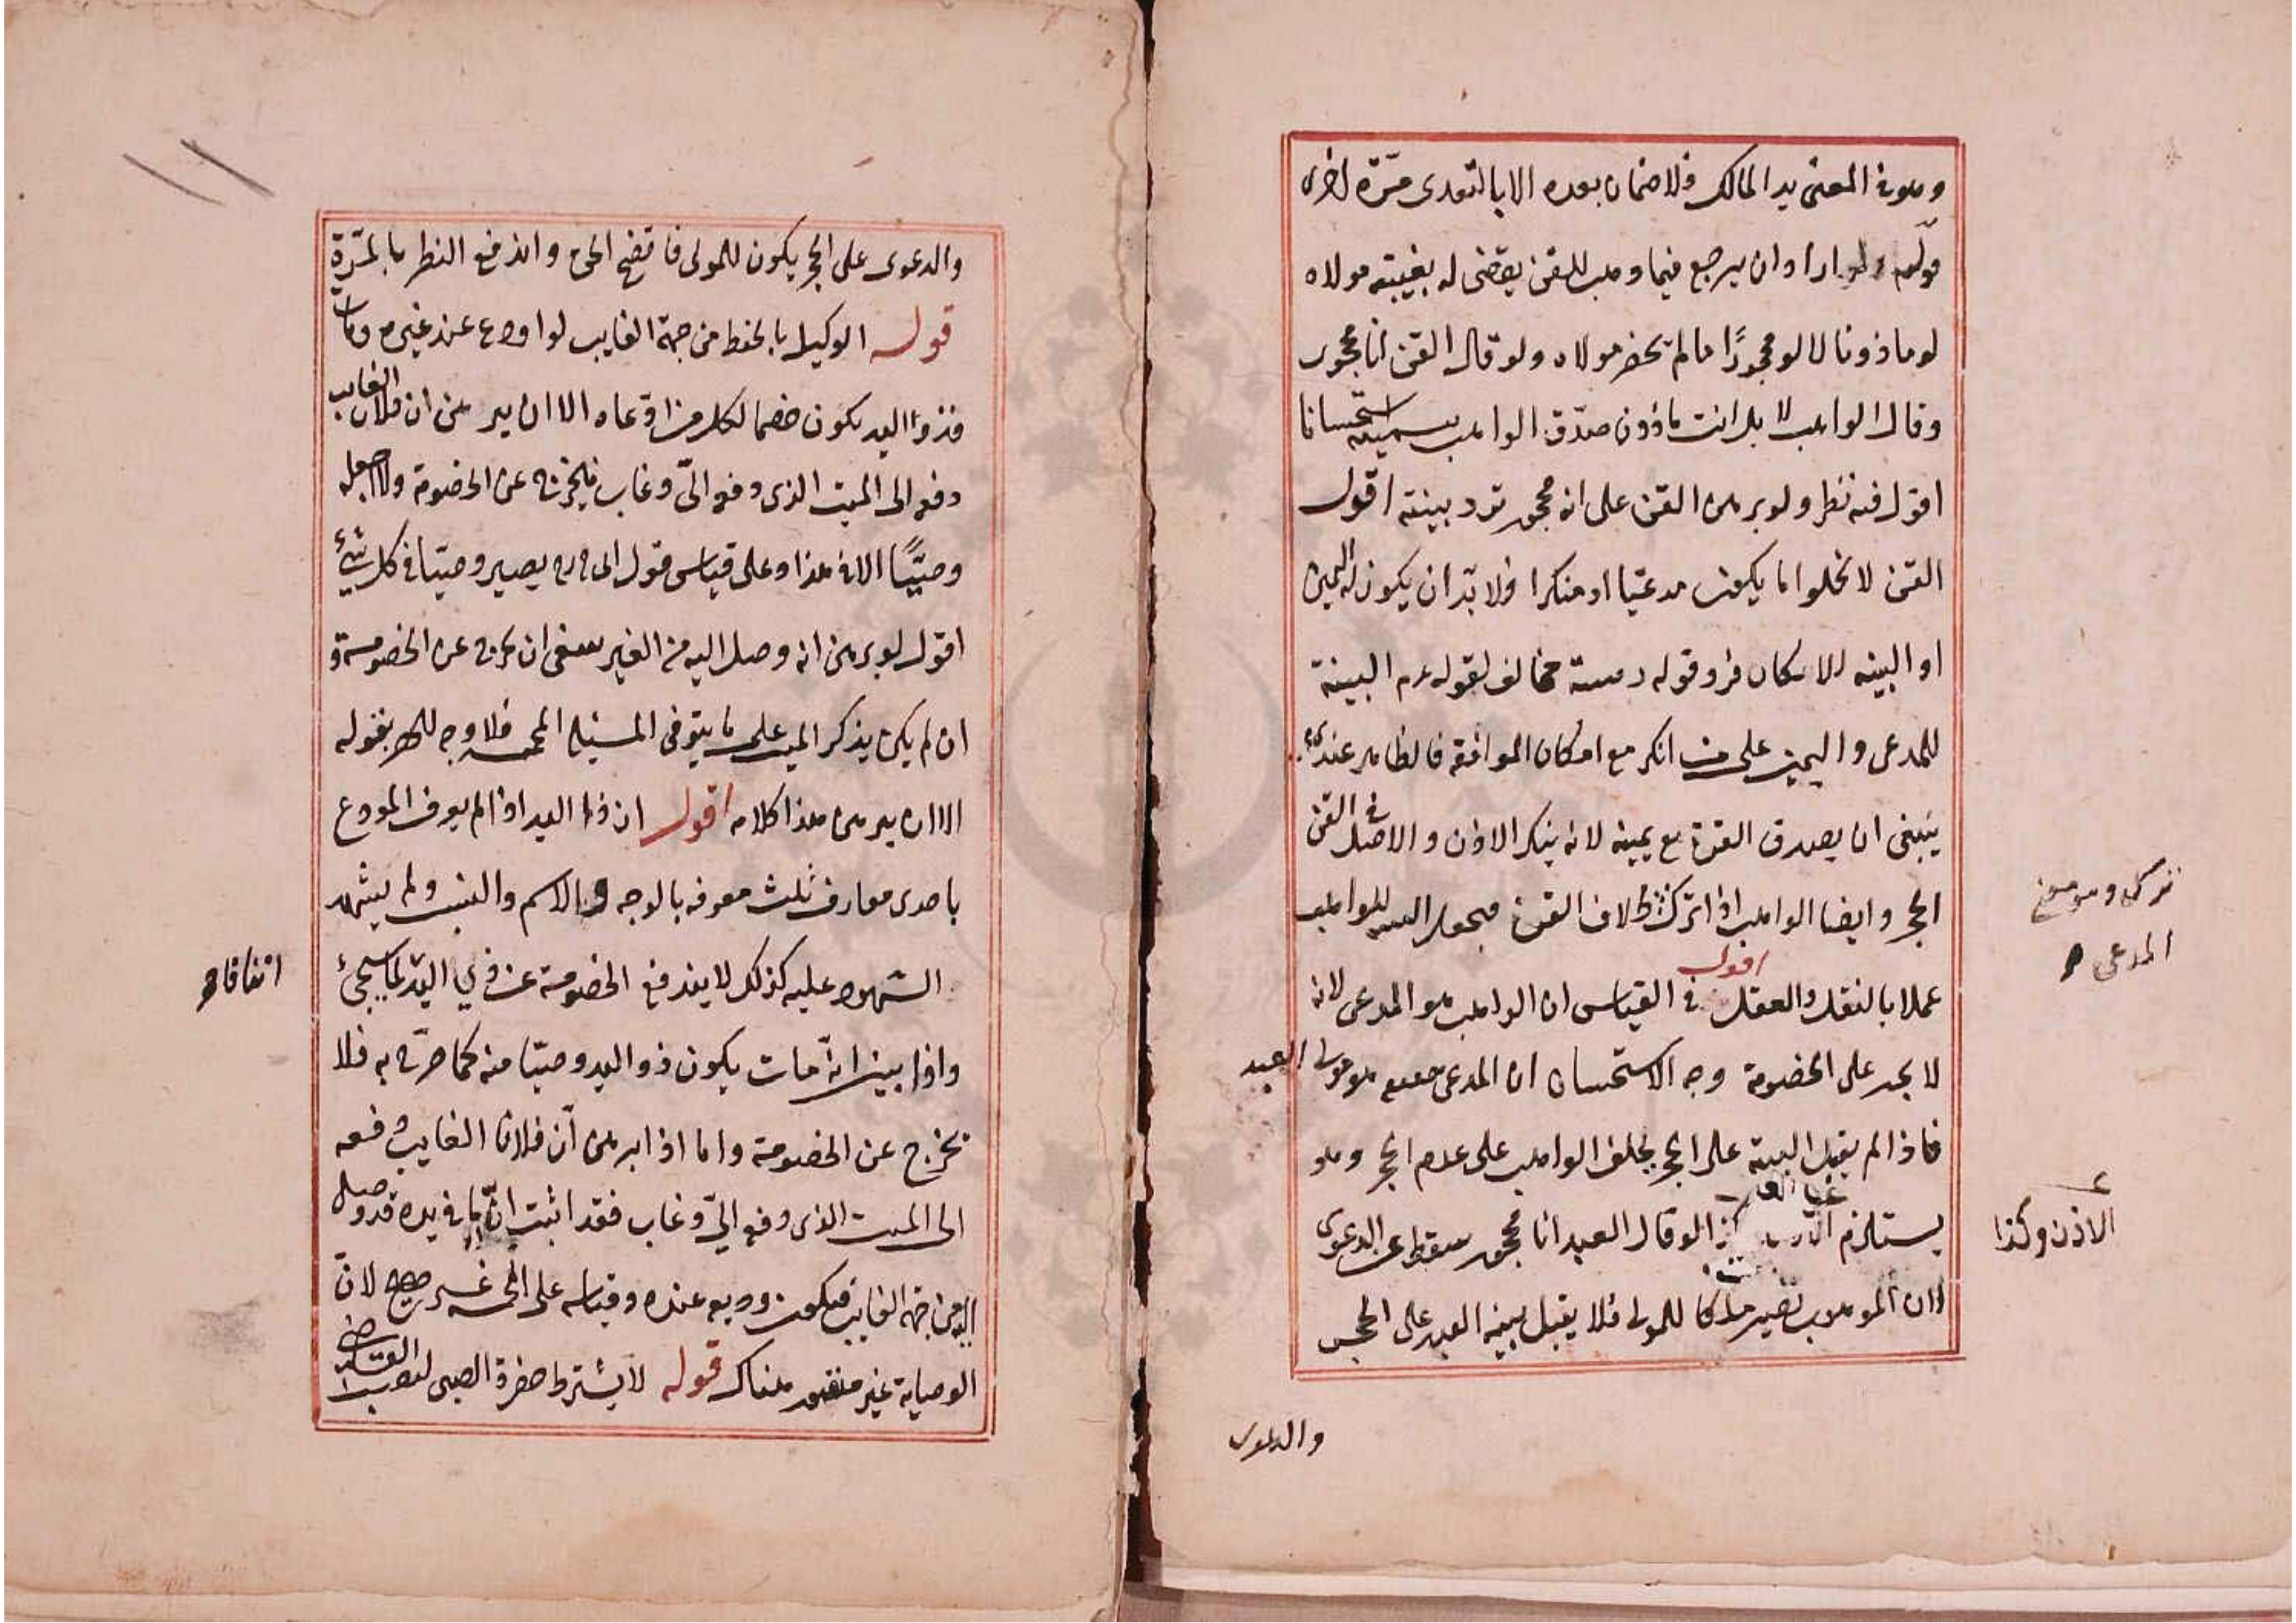 وهو في المعنى يد المالك فلا ضمان بعده الا بالتعدى مرّة اخرى
قوله ولو اراد ان يرجع فيما وهب للقن يقضى له بغيبته مولاه
لو ماذونا لا لو محجورًا ما لم يحضر مولاه ولو قال القن انا محجور
وقال الواهب لا بل انت ماذون صدّق الواهب بيمينه استحسانا
اقول فيه نظر ولو برهن القن على انه محجور ترد بينته اقول
القن لا يخلوا اما يكون مدعيّا او منكرا فلا بدّ ان يكون له اليمين
او البينه للاسكان فرد قوله وبينته مخالف لقوله عم البينة
للمدعى واليمين على من انكر مع امكان الموافقة فالظاهر عندى
ينبغى ان يصدق القن مع يمينه لانه ينكر الاذن والاصل فى القن
الحجر وايضا الواهب اذا ترك بخلاف القن فيجعل البينه للواهب
عملا بالنقل والعقل اقول فى القياس ان الواهب هو المدعى لانه
لا يجبر على الخصومة وجه الاستحسان ان المدعى حقيقه هو مولى العبد
فاذا لم يقبل البينة على الحجر يحلف الواهب على عدم الحجر وهو
يستلزم لو قال العبد انا محجور سقط عن الدعوى
لان الموهوب تصير ملكا للمولى فلا يقبل بينة العبد على الحجر
ترك وهو معنى
المدعى
الاذن وكذا
والدعوى
والدعوى على الحجر يكون للمولى فاتضح الحق واندفع النظر بالمرّة
قوله الوكيل بالحفظ من جهة الغايب لو اودع عند غيره ومات
فذو اليد يكون خصما لكل من ادّعاه الا ان يبرهن ان فلان الغايب
دفع الى الميت الذى دفع الىّ وغاب فيخرج عن الخصومة ولا اجعله
وصيًّا الا في هذا وعلى قياس قول ابى ح رح يصير وصيّا في كل شئ
اقول لو برهن انه وصل اليه من الغير ينبغى ان يخرج عن الخصومة و
ان لم يكن يذكر الميت على ما يتوقى المسئلة المخمسه فلا وجه للحصر بقوله
الا ان يبرهن هذا كلامه اقول ان ذا اليد اذا لم يعرف المودع
باحدى معارف ثلث معرفه بالوجه وبالاسم والنسب ولم يشهد
الشهود عليه كذلك لا يندفع الخصومة عن ذي اليد كما سيجئ
اتفاقا
واذا بين انّه مات يكون ذو اليد وصيّا منه كما صرّح به فلا
يخرج عن الخصومة واما اذا برهن انّ فلانا الغايب دفعه
الى الميت الذى دفع الىّ وغاب فقد اثبت انّ ما في يده قد وصل
اليه من جهة الغايب فيكون وديعه عنده وقياسه على المخمسه غير صحيح لانّ
الوصاية غير متصور هناك قوله لا يشترط حضرة الصبى لنصب القاضى